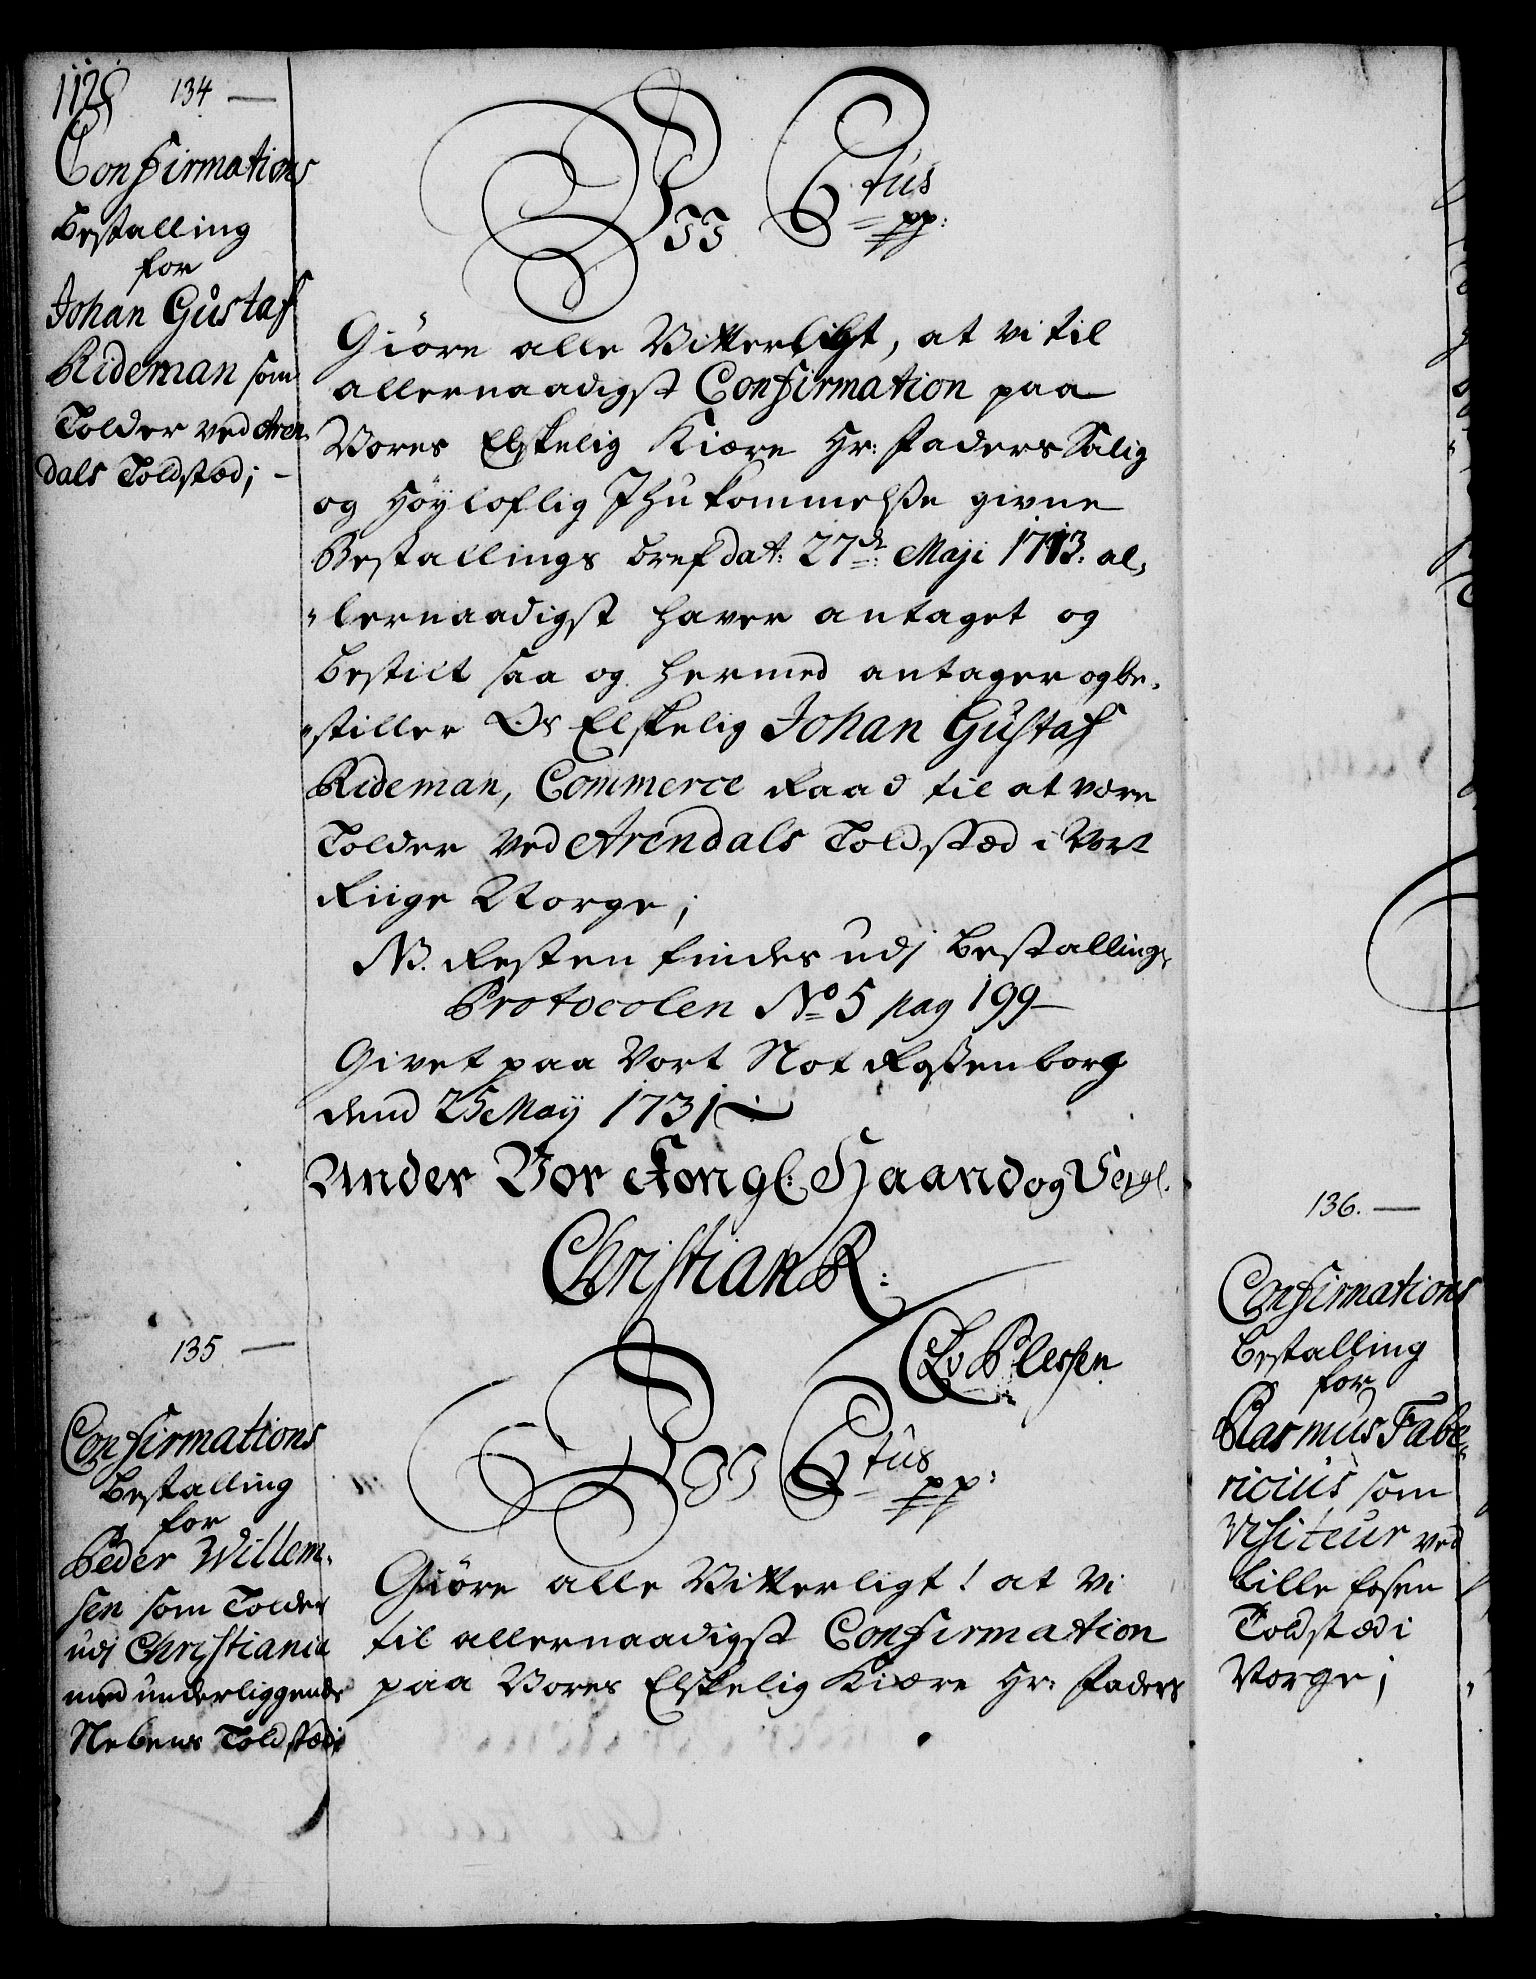 1128
134
Confirmations
Bestalling
for
Johan Gustaf
Rideman som
Tolder ved Aren
dals Toldstæd;
Vii C 6tus
pp:
Giöre alle Vitterligt, at vi til
allernaadigst Confirmation paa
Vores Elskelig Kiære Hr: Faders Salig
og Höyloflig Ihukommelße givne
Bestallings Bref dat: 27de Maji 1713. al,
lernaadigst haver antaget og
bestilt saa og hermed antager og be,
stiller Os Elskelig Johan Gustaf
Rideman, Commerce Raad til at være
Tolder ved Arendals Toldstæd i Vort
Riige Norge;
NB. Resten findes udi Bestallings
Protocolen No 5 pag 199
Givet paa Vort Slot Roßenborg
dend 25 May 1731
Under Vor Kongl: Haand og Seigl.
Christian R:
CAv Plessen
135
Confirmations
Bestalling
for
Peder Willem,
sen som Tolder
udi Christiania
med underliggende
Nebens Toldstæd;
Vii C 6tus
pp:
Giöre alle Vitterligt! at Vi
til allernaadigst Confirmation
paa Vores Elskelig Kiære Hr: Faders
136.
Confirmations
Bestalling
for
Rasmus Fabe,
ricius som
Visiteur ved
Lille Fosen
Toldstæd i
Norge;